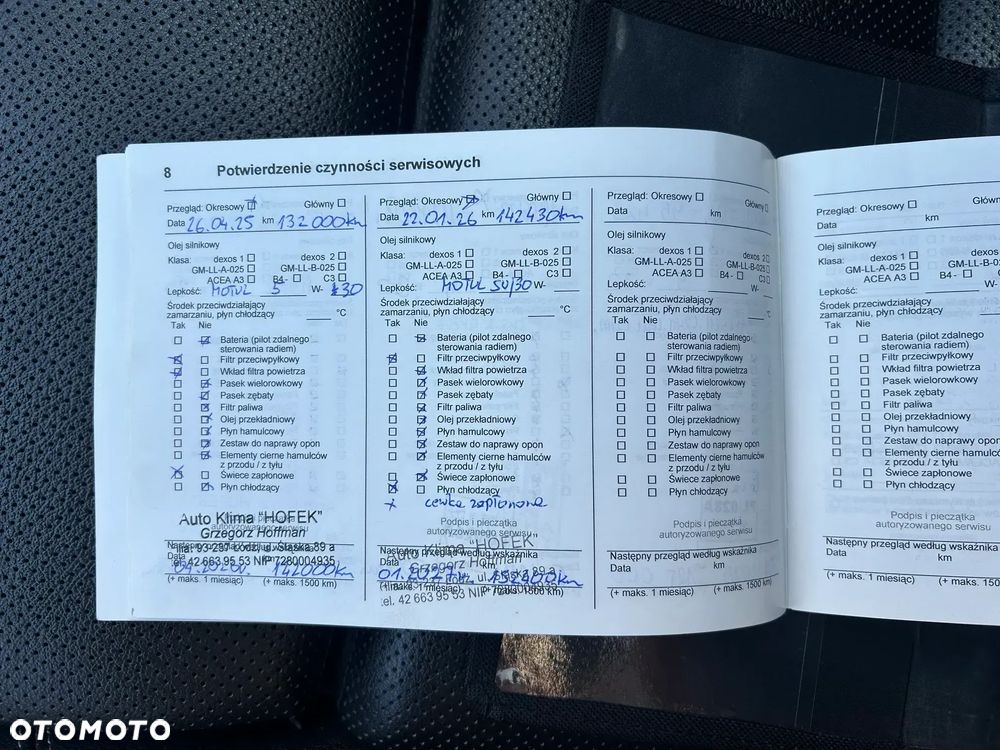 8 Potwierdzenie czynności serwisowych
Przegląd: Okresowy Główny
Data 26.04.25 km 132 000km
Olej silnikowy
Klasa: dexos 1 dexos 2
GM-LL-A-025 GM-LL-B-025
ACEA A3 B4- C3
Lepkość: MOTUL 5 W- 30
Środek przeciwdziałający
zamarzaniu, płyn chłodzący °C
Tak Nie
Bateria (pilot zdalnego
sterowania radiem)
Filtr przeciwpyłkowy
Wkład filtra powietrza
Pasek wielorowkowy
Pasek zębaty
Filtr paliwa
Olej przekładniowy
Płyn hamulcowy
Zestaw do naprawy opon
Elementy cierne hamulców
z przodu / z tyłu
Świece zapłonowe
Płyn chłodzący
Auto Klima "HOFEK"
autoryzowanego serwisu
Grzegorz Hoffman
93-237 Łódź, ul. Śląska 89 a
tel. 42 663 95 53 NIP 7280004935
Data 142000km
(+ maks. 1 miesiąc) (+ maks. 1500 km)
Przegląd: Okresowy Główny
Data 22.01.26 km 142430km
Olej silnikowy
Klasa: dexos 1 dexos 2
GM-LL-A-025 GM-LL-B-025
ACEA A3 B4- C3
Lepkość: MOTUL 5W/30 W-
Środek przeciwdziałający
zamarzaniu, płyn chłodzący °C
Tak Nie
Bateria (pilot zdalnego
sterowania radiem)
Filtr przeciwpyłkowy
Wkład filtra powietrza
Pasek wielorowkowy
Pasek zębaty
Filtr paliwa
Olej przekładniowy
Płyn hamulcowy
Zestaw do naprawy opon
Elementy cierne hamulców
z przodu / z tyłu
Świece zapłonowe
Płyn chłodzący
x cewka zapłonowa
Podpis i pieczątka
autoryzowanego serwisu
Auto Klima "HOFEK"
Następny przegląd według wskaźnika
Grzegorz Hoffman
Data 01.2027r. km 152400km
(+ maks. 1 miesiąc) (+ maks. 1500 km)
tel. 42 663 95 53 NIP 7280004935
Przegląd: Okresowy Główny
Data km
Olej silnikowy
Klasa: dexos 1 dexos 2
GM-LL-A-025 GM-LL-B-025
ACEA A3 B4- C3
Lepkość: W-
Środek przeciwdziałający
zamarzaniu, płyn chłodzący °C
Tak Nie
Bateria (pilot zdalnego
sterowania radiem)
Filtr przeciwpyłkowy
Wkład filtra powietrza
Pasek wielorowkowy
Pasek zębaty
Filtr paliwa
Olej przekładniowy
Płyn hamulcowy
Zestaw do naprawy opon
Elementy cierne hamulców
z przodu / z tyłu
Świece zapłonowe
Płyn chłodzący
Podpis i pieczątka
autoryzowanego serwisu
Następny przegląd według wskaźnika
Data km
(+ maks. 1 miesiąc) (+ maks. 1500 km)
Przegląd: Okresowy
Data km
Olej silnikowy
Klasa: dexos 1
GM-LL-A-025
ACEA A3 B4-
Lepkość: W-
Środek przeciwdziałający
zamarzaniu, płyn chłodzący
Tak Nie
Bateria (pilot zdalnego
sterowania radiem)
Filtr przeciwpyłkowy
Wkład filtra powietrza
Pasek wielorowkowy
Pasek zębaty
Filtr paliwa
Olej przekładniowy
Płyn hamulcowy
Zestaw do naprawy opon
Elementy cierne hamulców
z przodu / z tyłu
Świece zapłonowe
Płyn chłodzący
Podpis i pieczątka
autoryzowanego serwisu
Następny przegląd według wskaźnika
Data km
(+ maks. 1 miesiąc)
OTOMOTO